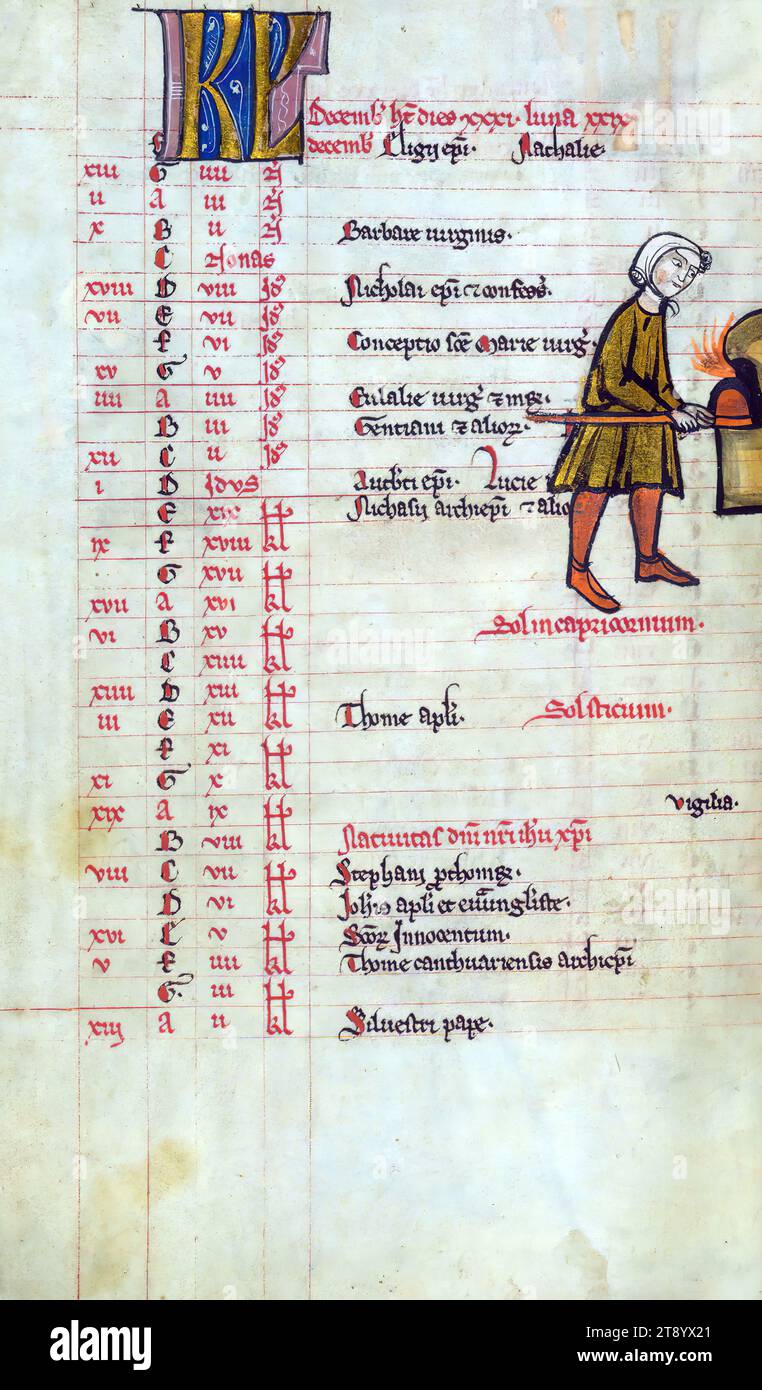 KL Decemb' ht dies xxxi. luna xxix
f decemb' Eligii epi. Nathalie.
xiii G iiii N
ii a iii N
x B ii N Barbare uirginis.
C Nonas
xviii D viii Id' Nicholai epi et confess'.
vii E vii Id'
f vi Id' Conceptio sce Marie uirg'.
xv G v Id'
iiii a iiii Id' Eulalie uirg' et mr.
B iii Id' Gentiani et alior.
xii C ii Id'
i D Idus Autb'ti epi. Lucie
E xix kl Nichasii archiepi et alio
ix f xviii kl
G xvii kl
xvii a xvi kl
vi B xv kl Sol in capricornium.
C xiiii kl
xiiii D xiii kl
iii E xii kl Thome apli. Solsticium.
f xi kl
xi G x kl
xix a ix kl vigilia.
B viii kl Natiuitas dni nri ihu xpi
viii C vii kl Stephani prthomr.
D vi kl Joh'is apli et euuangliste.
xvi E v kl Scor Innocentum.
v f iiii kl Thome canthuariensis archiepi
G. iii kl
xiij a ii kl Siluestri pape.
alamy
Image ID: 2T8YX21
www.alamy.com